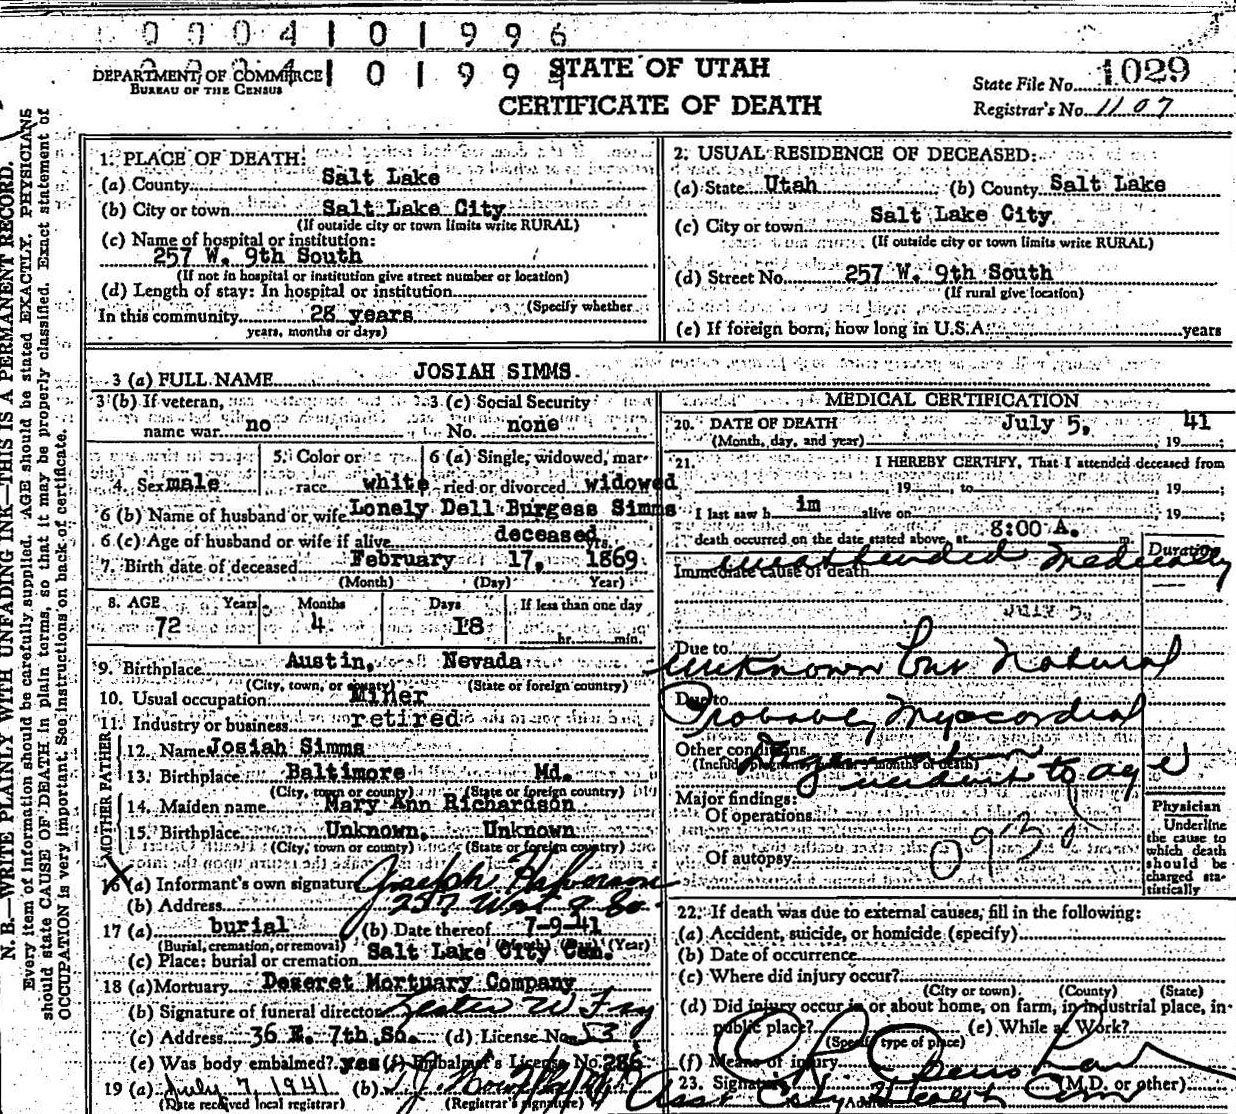 0004101996
DEPARTMENT OF COMMERCE
BUREAU OF THE CENSUS
STATE OF UTAH
CERTIFICATE OF DEATH
State File No. 1029
Registrar's No. 1107
N. B.—WRITE PLAINLY WITH UNFADING INK—THIS IS A PERMANENT RECORD.
Every item of information should be carefully supplied. AGE should be stated EXACTLY. PHYSICIANS
should state CAUSE OF DEATH in plain terms, so that it may be properly classified. Exact statement of
OCCUPATION is very important. See instructions on back of certificate.
1. PLACE OF DEATH:
(a) County Salt Lake
(b) City or town Salt Lake City
(If outside city or town limits write RURAL)
(c) Name of hospital or institution:
257 W. 9th South
(If not in hospital or institution give street number or location)
(d) Length of stay: In hospital or institution
(Specify whether
In this community 28 years
years, months or days)
2. USUAL RESIDENCE OF DECEASED:
(a) State Utah (b) County Salt Lake
(c) City or town Salt Lake City
(If outside city or town limits write RURAL)
(d) Street No. 257 W. 9th South
(If rural give location)
(e) If foreign born, how long in U.S.A. years
3 (a) FULL NAME JOSIAH SIMMS
3 (b) If veteran,
name war no
3 (c) Social Security
No. none
4. Sex male
5. Color or
race white
6 (a) Single, widowed, mar-
ried or divorced widowed
6 (b) Name of husband or wife Lonely Dell Burgess Simms
6 (c) Age of husband or wife if alive deceased yrs.
7. Birth date of deceased February 17, 1869
(Month) (Day) Year)
8. AGE Years Months Days If less than one day
72 4 18 hr. min.
9. Birthplace Austin, Nevada
(City, town, or county) (State or foreign country)
10. Usual occupation Miner
11. Industry or business retired
FATHER
12. Name Josiah Simms
13. Birthplace Baltimore Md.
(City, town or county) (State or foreign country)
MOTHER
14. Maiden name Mary Ann Richardson
15. Birthplace Unknown, Unknown
(City, town or county) (State or foreign country)
16 (a) Informant's own signature Joseph Halverson
(b) Address 257 West 9 So.
17 (a) burial (b) Date thereof 7-9-41
(Burial, cremation, or removal) (Month) (Day) (Year)
(c) Place: burial or cremation Salt Lake City Cem.
18 (a) Mortuary Deseret Mortuary Company
(b) Signature of funeral director Lester W Fry
(c) Address 36 E. 7th So. (d) License No. 53
(e) Was body embalmed? yes (f) Embalmer's License No. 286
19 (a) July 7, 1941 (b)
(Date received local registrar) (Registrar's signature)
MEDICAL CERTIFICATION
20. DATE OF DEATH July 5, 1941
(Month, day, and year)
21. I HEREBY CERTIFY, That I attended deceased from
19 , to , 19 ;
I last saw h im alive on , 19 ;
death occurred on the date stated above, at 8:00 A. m.
Duration
Immediate cause of death unattended medically
JULY 5,
Due to unknown but natural
Due to Probably Myocordial
Other conditions Degeneration
(Include pregnancy within 3 months of death)
incident to age
Major findings:
Of operations
Of autopsy
0930
Physician
Underline
the cause to
which death
should be
charged sta-
tistically
22. If death was due to external causes, fill in the following:
(a) Accident, suicide, or homicide (specify)
(b) Date of occurrence
(c) Where did injury occur?
(City or town) (County) (State)
(d) Did injury occur in or about home, on farm, in industrial place, in
public place? (e) While at Work?
(Specify type of place)
(f) Means of injury
23. Signature (M.D. or other)
Asst City Health Com
Address